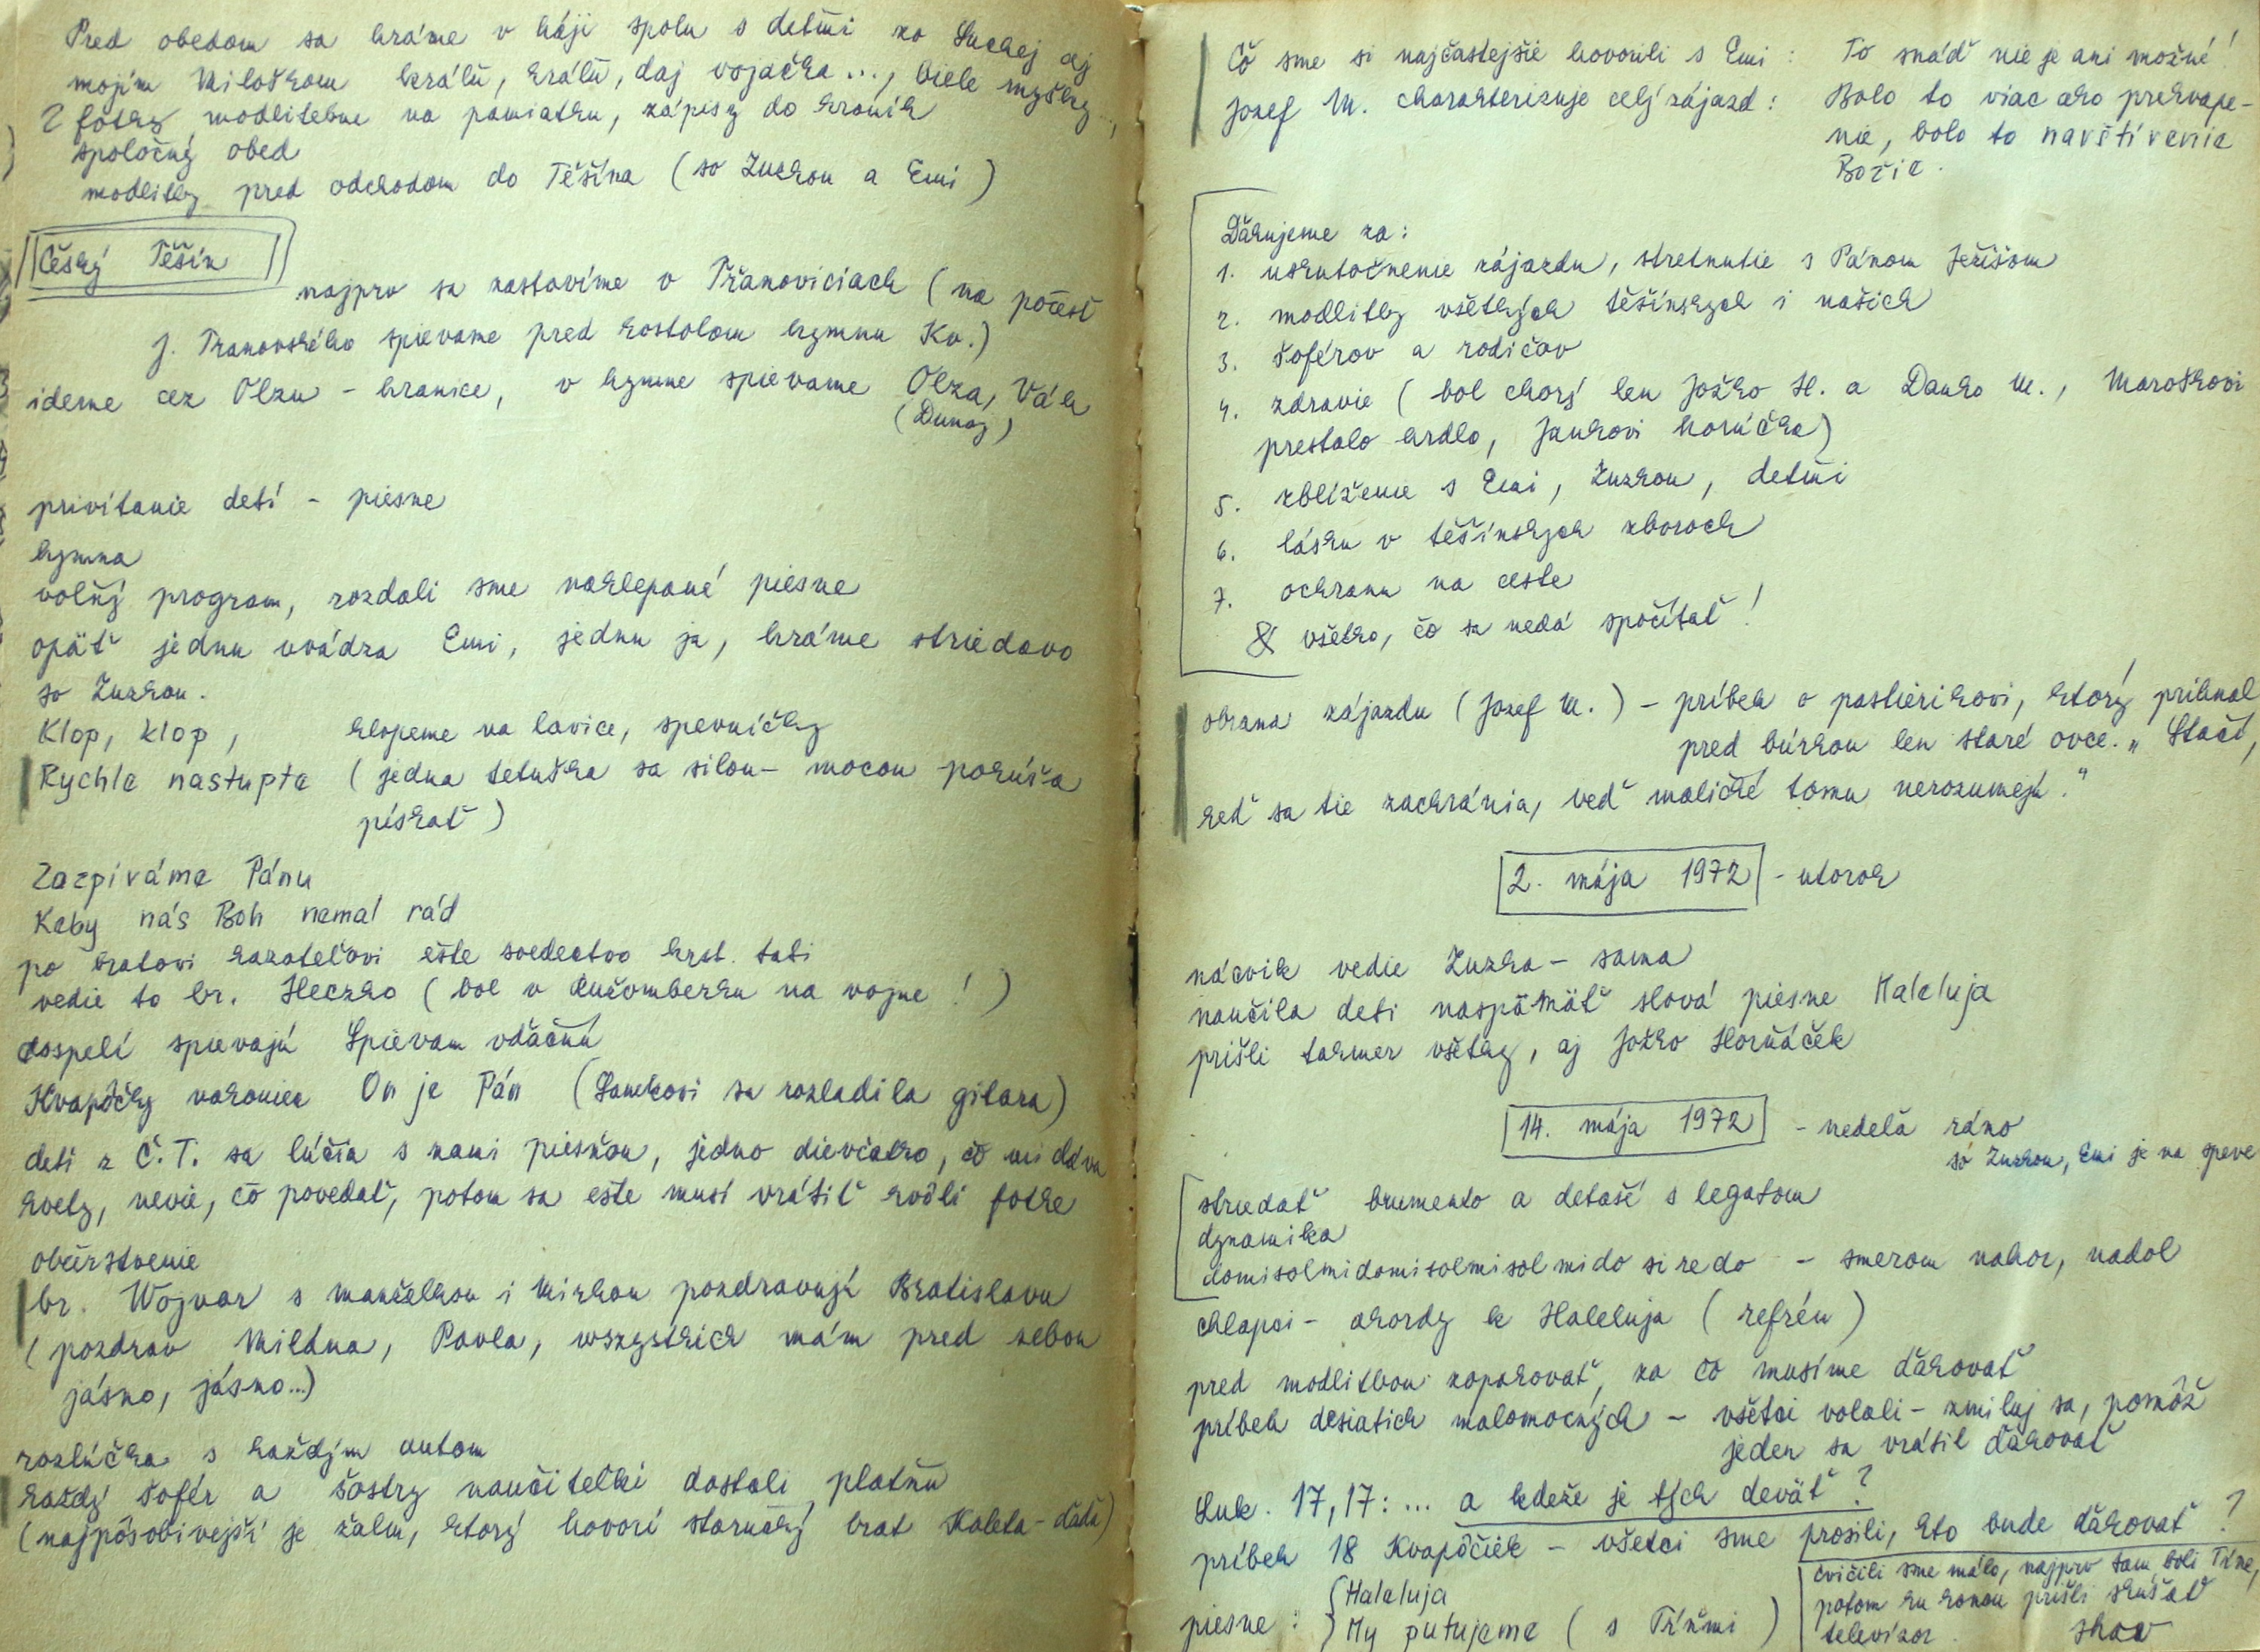 Pred obedom sa hráme v háji spolu s deťmi zo Suchej aj
mojím Miloškom králú, králú, daj vojačka..., biele myšky...,
2 fotky modlitebne na pamiatku, zápisy do kroník
spoločný obed
modlitby pred odchodom do Těšína (so Zuzkou a Emi)
Český Těšín
najprv sa zastavíme v Třanoviciach (na počesť
J. Tranovského spievame pred kostolom hymnu Kv.)
ideme cez Olzu - hranice, v hymne spievame Olza, Váh
(Dunaj)
privítanie detí - piesne
hymna
voľný program, rozdali sme naklepané piesne
opäť jednu uvádza Emi, jednu ja, hráme striedavo
so Zuzkou.
Klop, klop, klopeme na lavice, spevníčky
Rychle nastupte (jedna tetuška sa silou-mocou pokúša
pískať)
Zazpíváme Pánu
Keby nás Boh nemal rád
po bratovi kazateľovi ešte svedectvo krst. tati
vedie to br. Heczko (bol v Ružomberku na vojne!)
dospelí spievajú Spievam vďačnú
Kvapôčky nakoniec On je Pán (Samkovi sa rozladila gitara)
deti z Č.T. sa lúčia s nami piesňou, jedno dievčatko, čo mi dáva
kvety, nevie, čo povedať, potom sa ešte musí vrátiť kvôli fotke
občerstvenie
br. Wojnar s manželkou i Mirkou pozdravujú Bratislavu
(pozdrav Mildna, Pavla, wszystkich mám pred sebou
jásno, jásno...)
rozlúčka s každým autom
každý šofér a sestry naučiteľkí dostali platňu
(najpôsobivejší je žalm, ktorý hovorí staručký brat Kaleta-dáda)
Čo sme si najčastejšie hovorili s Emi: To snáď nie je ani možné!
Jozef M. charakterizuje celý zájazd: Bolo to viac ako prekvape-
nie, bolo to navštívenie
Božie.
Ďakujeme za:
1. uskutočnenie zájazdu, stretnutie s Pánom Ježišom
2. modlitby všetkých těšínskych i našich
3. šoférov a rodičov
4. zdravie (bol chorý len Jožko H. a Danko M., Maroškovi
prestalo hrdlo, Jankovi horúčka)
5. zblíženie s Emi, Zuzkou, deťmi
6. lásku v těšínskych zboroch
7. ochranu na ceste
& všetko, čo sa nedá spočítať!
obrana zájazdu (Jozef M.) - príbeh o pastierikovi, ktorý prihnal
pred búrkou len staré ovce. „Stačí,
keď sa tie zachránia, veď maličké tomu nerozumejú."
2. mája 1972 - utorok
nácvik vedie Zuzka - sama
naučila deti naspämäť slová piesne Haleluja
prišli takmer všetky, aj Jožko Horňáček
14. mája 1972 - nedeľa ráno
so Zuzkou, Emi je na speve
striedať brumendo a detašé s legatom
dynamika
domisolmidomisolmisolmido siredo - smerom nahor, nadol
chlapci - akordy k Haleluja (refrén)
pred modlitbou zopakovať, za čo musíme ďakovať
príbeh desiatich malomocných - všetci volali - zmiluj sa, pomôž
jeden sa vrátil ďakovať
Luk. 17,17: ... a kdeže je tých deväť?
príbeh 18 Kvapôčiek - všetci sme prosili, kto bude ďakovať?
piesne: Haleluja
My putujeme (s Tíňmi)
cvičili sme málo, najprv tam boli Tíne,
potom ku koncu prišli skúšať
televízor. shov